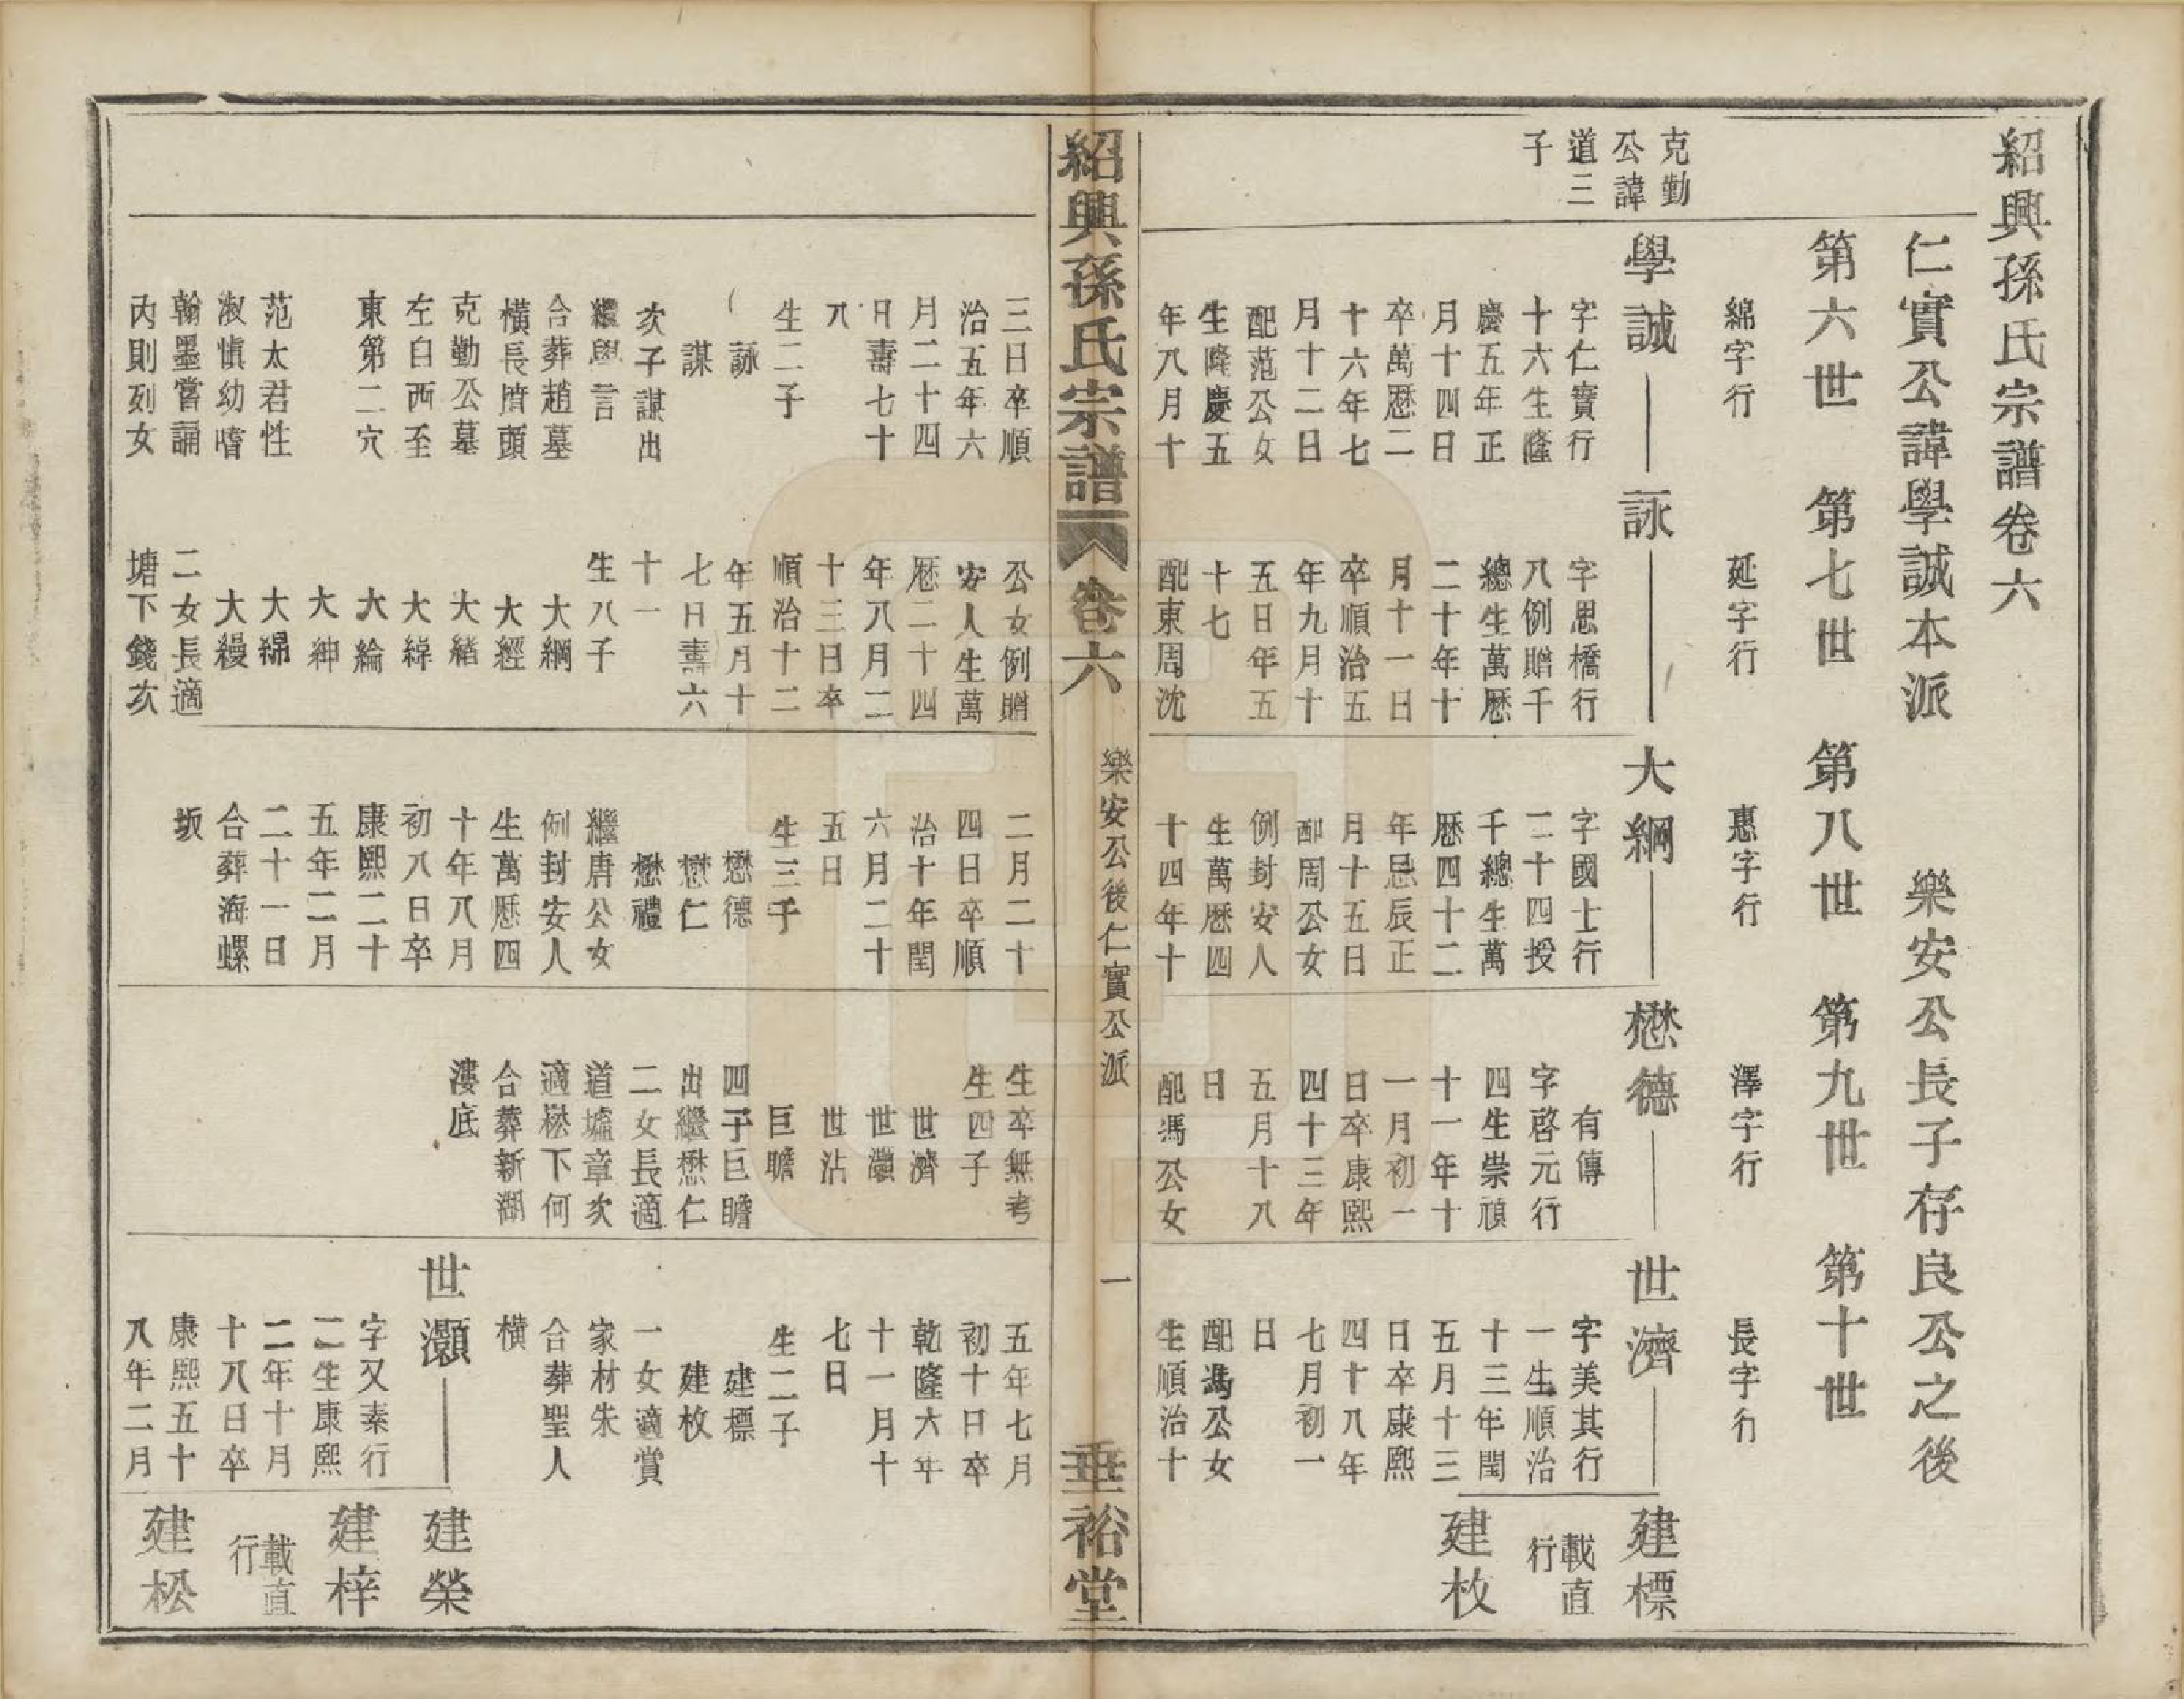 紹興孫氏宗譜卷六
仁實公諱學誠本派　樂安公長子存良公之後
第六世　第七世　第八世　第九世　第十世
綿字行　延字行　惠字行　澤字行　長字行
克勤
公諱
道三
子
學誠
字仁實行
十六生隆
慶五年正
月十四日
卒萬厯二
十六年七
月十二日
配范公女
生隆慶五
年八月十
三日卒順
治五年六
月二十四
日壽七十
八
生二子
詠
謀
次子謀出
繼學言
合葬趙墓
橫長㬹頭
克勤公墓
左自西至
東第二穴
范太君性
淑慎幼嗜
翰墨嘗誦
內則列女
詠
字思橋行
八例贈千
總生萬厯
二十年十
月十一日
卒順治五
年九月十
五日年五
十七
配東周沈
公女例贈
安人生萬
厯二十四
年八月二
十三日卒
順治十二
年五月十
七日壽六
十一
生八子
大綱
大經
大緒
大綽
大綸
大紳
大綿
大縵
二女長適
塘下錢次
大綱
字國士行
二十四授
千總生萬
厯四十二
年忌辰正
月十五日
配周公女
例封安人
生萬厯四
十四年十
二月二十
四日卒順
治十年閏
六月二十
五日
生三子
懋德
懋仁
懋禮
繼唐公女
例封安人
生萬厯四
十年八月
初八日卒
康熙二十
五年二月
二十一日
合葬海螺
坂
懋德
有傳
字啓元行
四生崇禎
十一年十
一月初一
日卒康熙
四十三年
五月十八
日
配馮公女
生卒無考
生四子
世濟
世灝
世沾
巨瞻
四子巨瞻
出繼懋仁
二女長適
道墟章次
適崧下何
合葬新湖
漊底
世濟
字美其行
一生順治
十三年閏
五月十三
日卒康熙
四十八年
七月初一
日
配馮公女
生順治十
五年七月
初十日卒
乾隆六年
十一月十
七日
生二子
建標
建枚
一女適賞
家材朱
合葬聖人
橫
建標
載直
行
建枚
世灝
字又素行
二生康熙
二年十月
十八日卒
康熙五十
八年二月
建榮
建梓
載直
行
建松
紹興孫氏宗譜
卷六
樂安公後仁實公派
一
垂裕堂